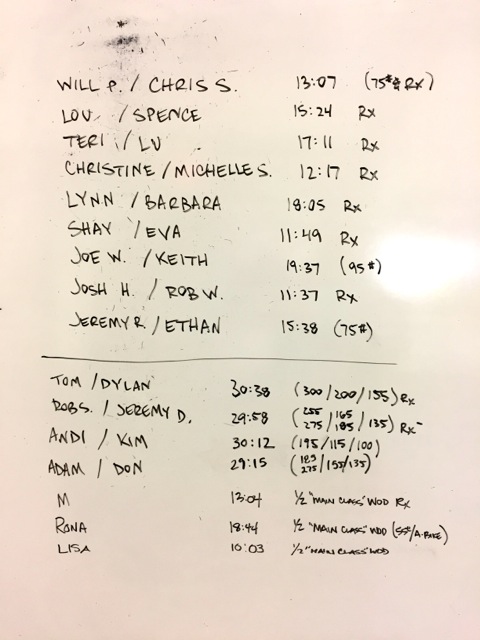 WILL P. / CHRIS S. 13:07 (75# & RX)
LOU / SPENCE 15:24 RX
TERI / LU 17:11 RX
CHRISTINE / MICHELLE S. 12:17 RX
LYNN / BARBARA 18:05 RX
SHAY / EVA 11:49 RX
JOE W. / KEITH 19:37 (95#)
JOSH H. / ROB W. 11:37 RX
JEREMY R. / ETHAN 15:38 (75#)
TOM / DYLAN 30:38 (300/200/155) RX
ROB S. / JEREMY D. 29:58 (255 275/165 185/135) RX-
ANDI / KIM 30:12 (195/115/100)
ADAM / DON 29:15 (185 275/155/135)
M 13:04 1/2 "MAIN CLASS" WOD RX
RONA 18:44 1/2 "MAIN CLASS" WOD (55#/A.BIKE)
LISA 10:03 1/2 "MAIN CLASS" WOD